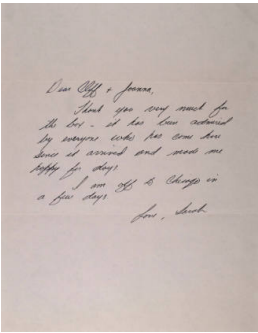 Dear Cliff & Joanna,
Thank you very much for
the box - it has been admired
by everyone who has come here
since it arrived and made me
happy for days.
I am off to Chicago in
a few days
Love, Sarah